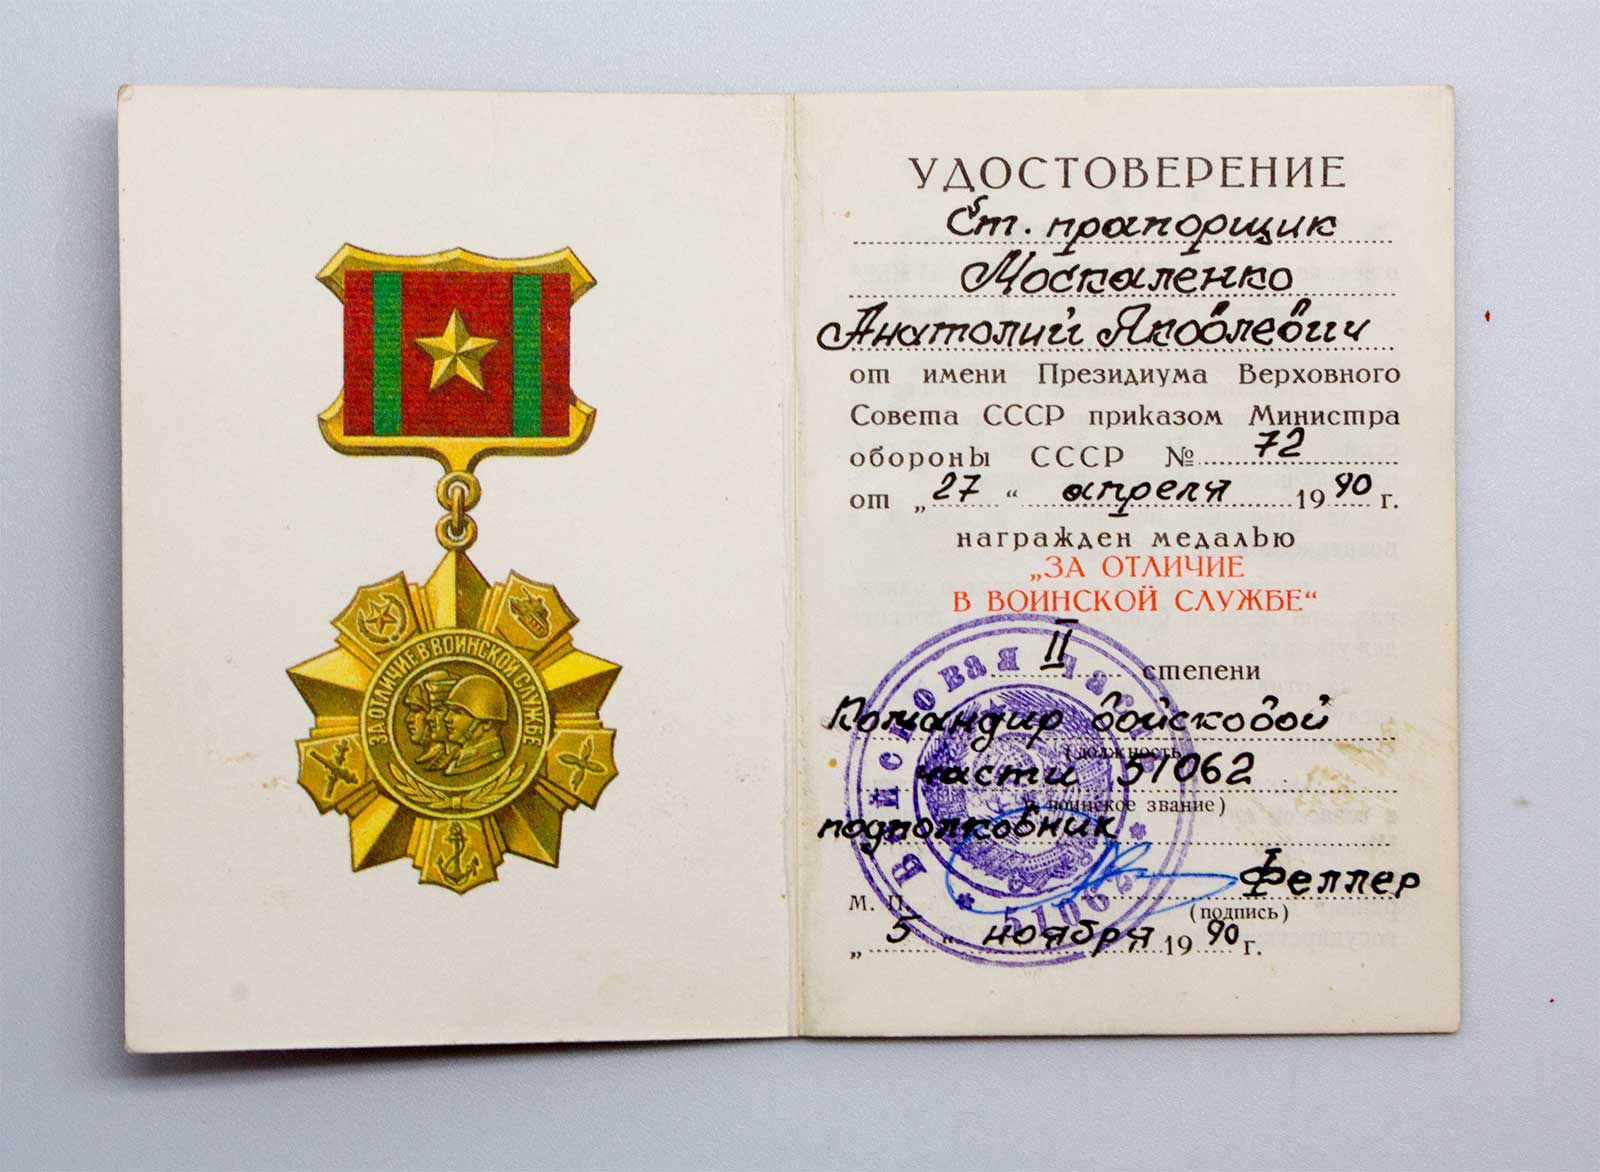 ЗА ОТЛИЧИЕ В ВОИНСКОЙ СЛУЖБЕ
УДОСТОВЕРЕНИЕ
Ст. прапорщик
Москаленко
Анатолий Яковлевич
от имени Президиума Верховного
Совета СССР приказом Министра
обороны СССР № 72
от „27“ апреля 1990 г.
награжден медалью
„ЗА ОТЛИЧИЕ
В ВОИНСКОЙ СЛУЖБЕ“
II степени
Командир войсковой
(должность
части 51062
и воинское звание)
подполковник
Феллер
М. П.
(подпись)
„5“ ноября 1990 г.
Войсковая часть
* 51062 *